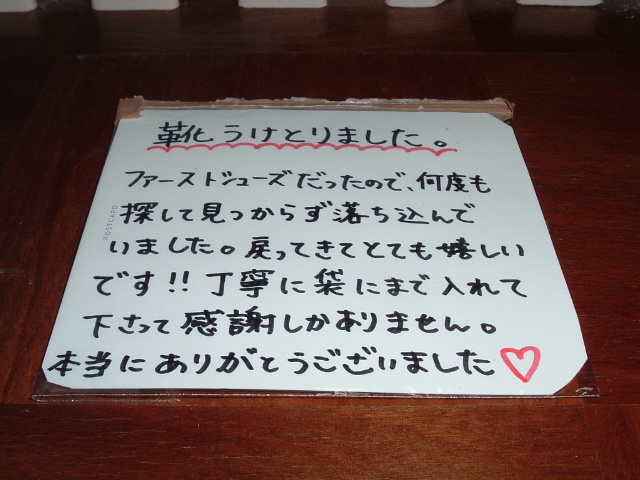 靴うけとりました。
ファーストシューズだったので、何度も
探して見つからず落ち込んで
いました。戻ってきてとても嬉しい
です!!丁寧に袋にまで入れて
下さって感謝しかありません。
本当にありがとうございました♡
POSTCARD